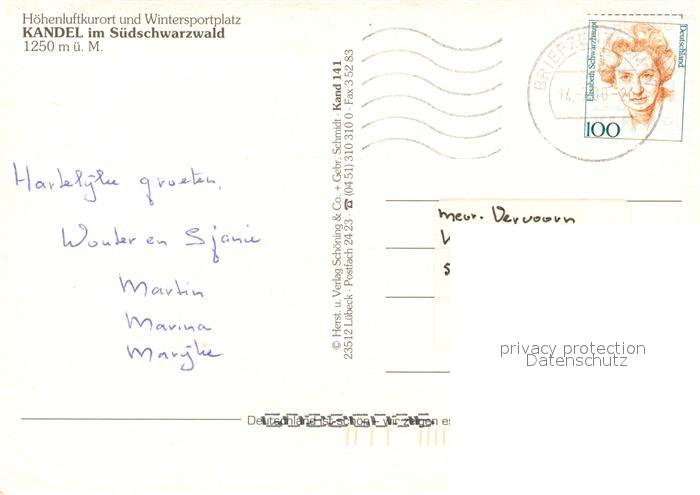 Höhenluftkurort und Wintersportplatz
KANDEL im Südschwarzwald
1250 m ü. M.
Hartelijke groeten,
Wouter en Sjanie
Martin
Marina
Marijke
© Herst. u. Verlag Schöning & Co. + Gebr. Schmidt · Kand 141
23512 Lübeck · Postfach 24 23 ☎ (04 51) 310 310 0 · Fax 3 52 83
BRIEFZE
14.
00-
Elisabeth Schwarzhaupt
Deutschland
100
mevr. Vervoorn
privacy protection
Datenschutz
Deutschland ist schön - wir zeigen es